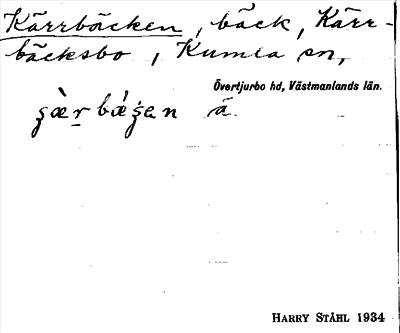 Kärrbäcken, bäck, Kärr-
bäcksbo, Kumla sn,
Övertjurbo hd, Västmanlands län.
å
HARRY STÅHL 1934